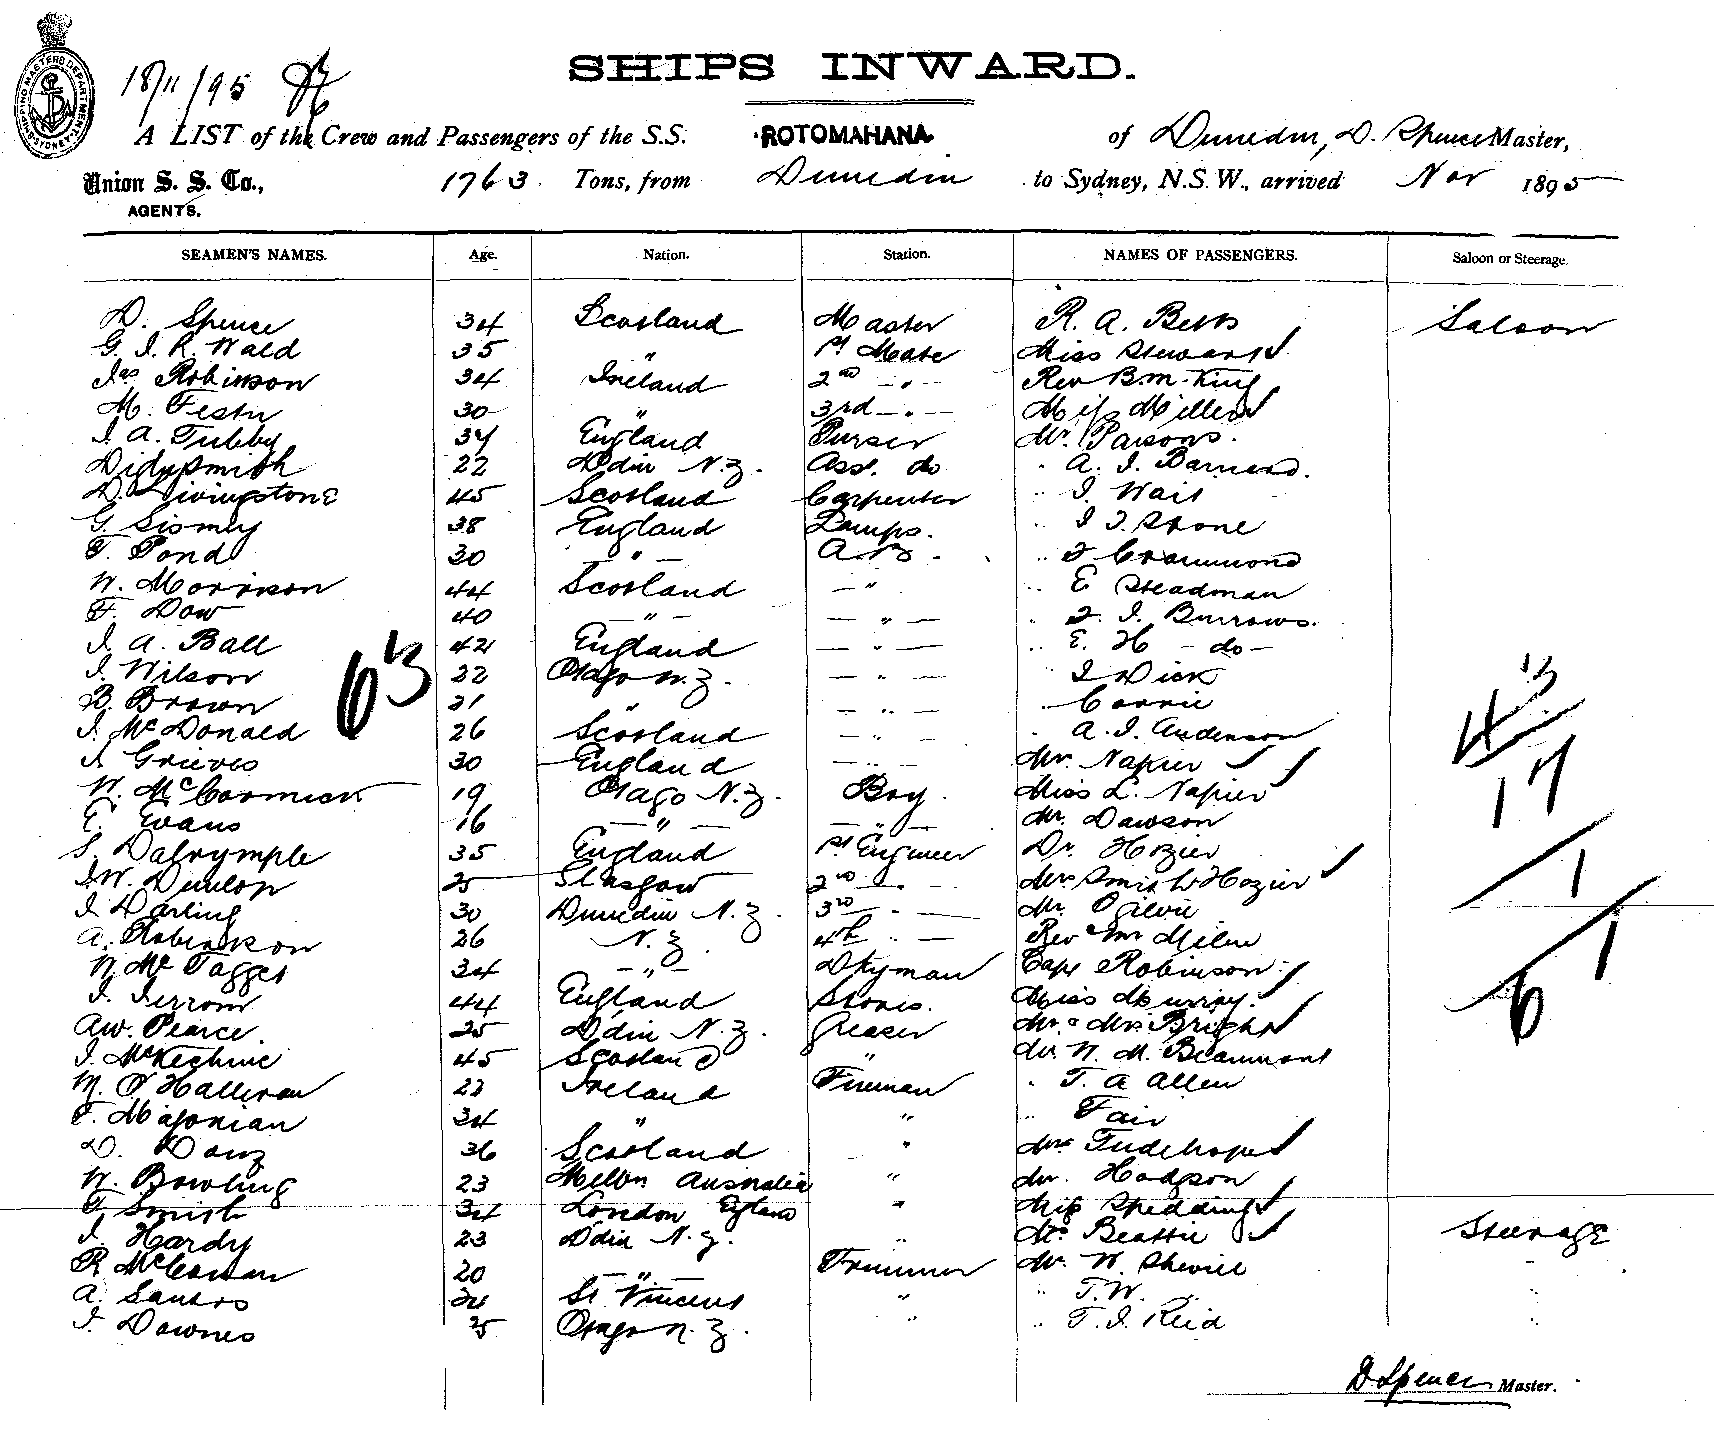 SHIPPING MASTERS DEPARTMENT. SYDNEY
18/11/95
SHIPS INWARD.
A LIST of the Crew and Passengers of the S.S. ROTOMAHANA of Dunedin, D. Spence Master,
Union S. S. Co., 1763 Tons, from Dunedin to Sydney, N.S.W., arrived Nov 1895
AGENTS.
SEAMEN'S NAMES. Age. Nation. Station. NAMES OF PASSENGERS. Saloon or Steerage.
D. Spence 34 Scotland Master R. A. Betts Saloon
G. I. R. Wald 35 " 1st Mate Miss Stewart
Jas Robinson 34 Ireland 2nd - " - Rev B. M. King
M. 30 " 3rd - " - Miss Miller
J. A. Tubby 34 England Purser Mr. Parsons.
Smith 22 Ddin N.Z. Asst. do " A. J. Barnard.
D. Livingstone 45 Scotland Carpenter " J. Wait
G. Sismey 38 England Lamps. " J. J. Stone
F. Pond 30 - " - A B. " J Crammond
W. Morrison 44 Scotland - " " E Steadman
F. Dow 40 - " - - " - " J. J. Burrows.
J. A. Ball 42 England - " - " E. H - do -
J. Wilson 22 Otago N.Z. - " - " J Dick
B. Brown 31 " - " - " Corrie
J. McDonald 26 Scotland - " - " A. J. Anderson
Grieves 30 England - " - Mr. Napier
W. McCormick 19 Otago N.Z. Boy. Miss L. Napier
E. Evans 16 - " - - " - Mr. Dawson
S. Dalrymple 35 England 1st Engineer Dr. Hozier
J. W. Dunlop 25 Glasgow 2nd " - Mrs Smith Hozier
J. Darling 30 Dunedin N.Z. 3rd " - Mr Ogilvie
A. Robinson 26 N.Z. 4th " - Rev Mr Milne
W. McTagget 34 - " - Dkyman Capt Robinson
J. Jerrom 44 England Stores. Miss Murray.
A W. Pearce. 25 Ddin N.Z. Greaser Mr. & Mrs Bright
J. McKechnie 45 Scotland " Mr. W. M. Beaumont
M. O'Halliran 22 Ireland Fireman " T. A Allen
F. 34 " " " Fair
D. 36 Scotland " Mrs Tudehope
W. Bowling 23 Melbn Australia " Mr. Hodgson
F. Smith 34 London England " Miss Spedding
J. Hardy 23 Ddin N.Z. " Mrs Beattie Steerage
R. McCowan 20 - " - Trimmer Mr. W. "
A. Santos 24 St Vincent " " T. W. "
J. Downes 25 Otago N.Z. " " T. J. Reid "
63
43
17
1
1
6
D Spence Master.